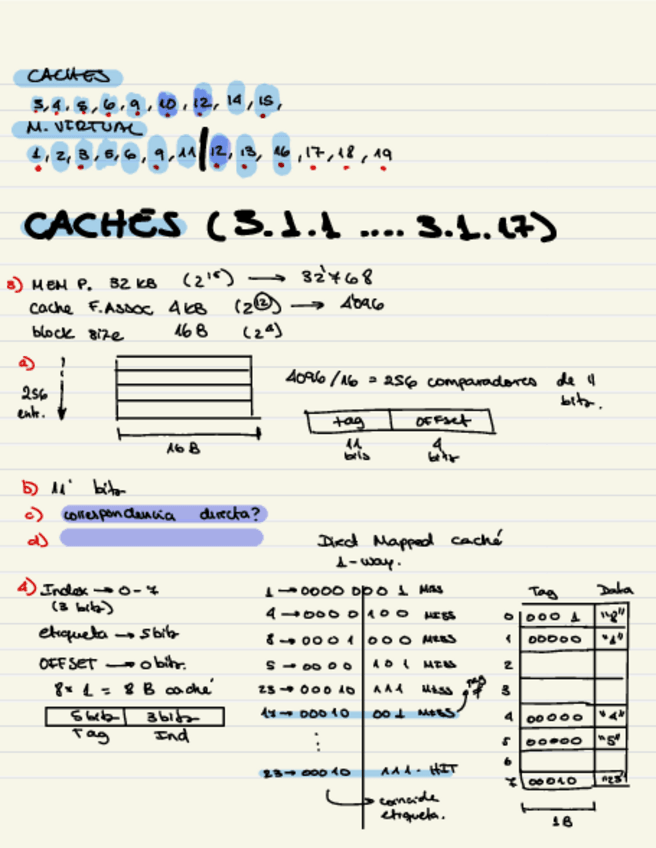 CACHES
3, 4, 5, 6, 9, 10, 12, 14, 15,
M. VIRTUAL
1, 2, 3, 5, 6, 9, 11 | 12, 13, 16, 17, 18, 19
CACHÉS (3.1.1 .... 3.1.17)
3) MEM P. 32 KB (2^15) → 32'768
cache F.ASSOC 4KB (2^12) → 4096
block size 16 B (2^4)
a)
256
entr.
16 B
4096/16 = 256 comparadores de 11
bits.
tag OFFset
11 bits 4 bits
b) 11 bits
c) correspondencia directa?
d)
Direct Mapped caché
1-way.
4) Index → 0-7
(3 bits)
etiqueta → 5 bits
OFFSET → 0 bits.
8 * 1 = 8 B caché
5 bits 3 bits
Tag Ind
1 → 0000 0 00 1 MISS
4 → 000 0 100 MISS
8 → 000 1 000 MISS
5 → 00 00 101 MISS
23 → 000 10 111 MISS
17 → 000 10 00 1 MISS
⋮
23 → 000 10 111. HIT
coincide
etiqueta.
Tag Data
0 000 1 "8"
1 00000 "1"
2
3
4 00000 "4"
5 00000 "5"
6
7 00010 "23"
1B